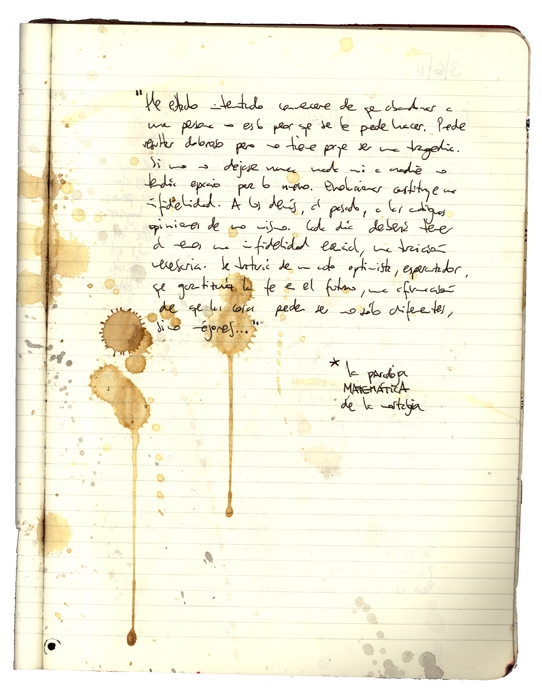 "He estado intentando convencerme de que abandonar a
una persona no es lo peor que se le puede hacer. Puede
resultar doloroso pero no tiene porque ser una tragedia.
Si uno no dejase nunca nada ni a nadie no
tendría espacio por lo nuevo. Evolucionar constituye una
infidelidad. A los demás, al pasado, a las antiguas
opiniones de uno mismo. Cada día debería tener
al menos una infidelidad esencial, una traición
necesaria. Se trataría de un acto optimista, esperanzador,
que garantizaría la fe en el futuro, una afirmación
de que las cosas pueden ser no sólo diferentes,
sino mejores..."
* la paradoja
MATEMÁTICA
de la nostalgia